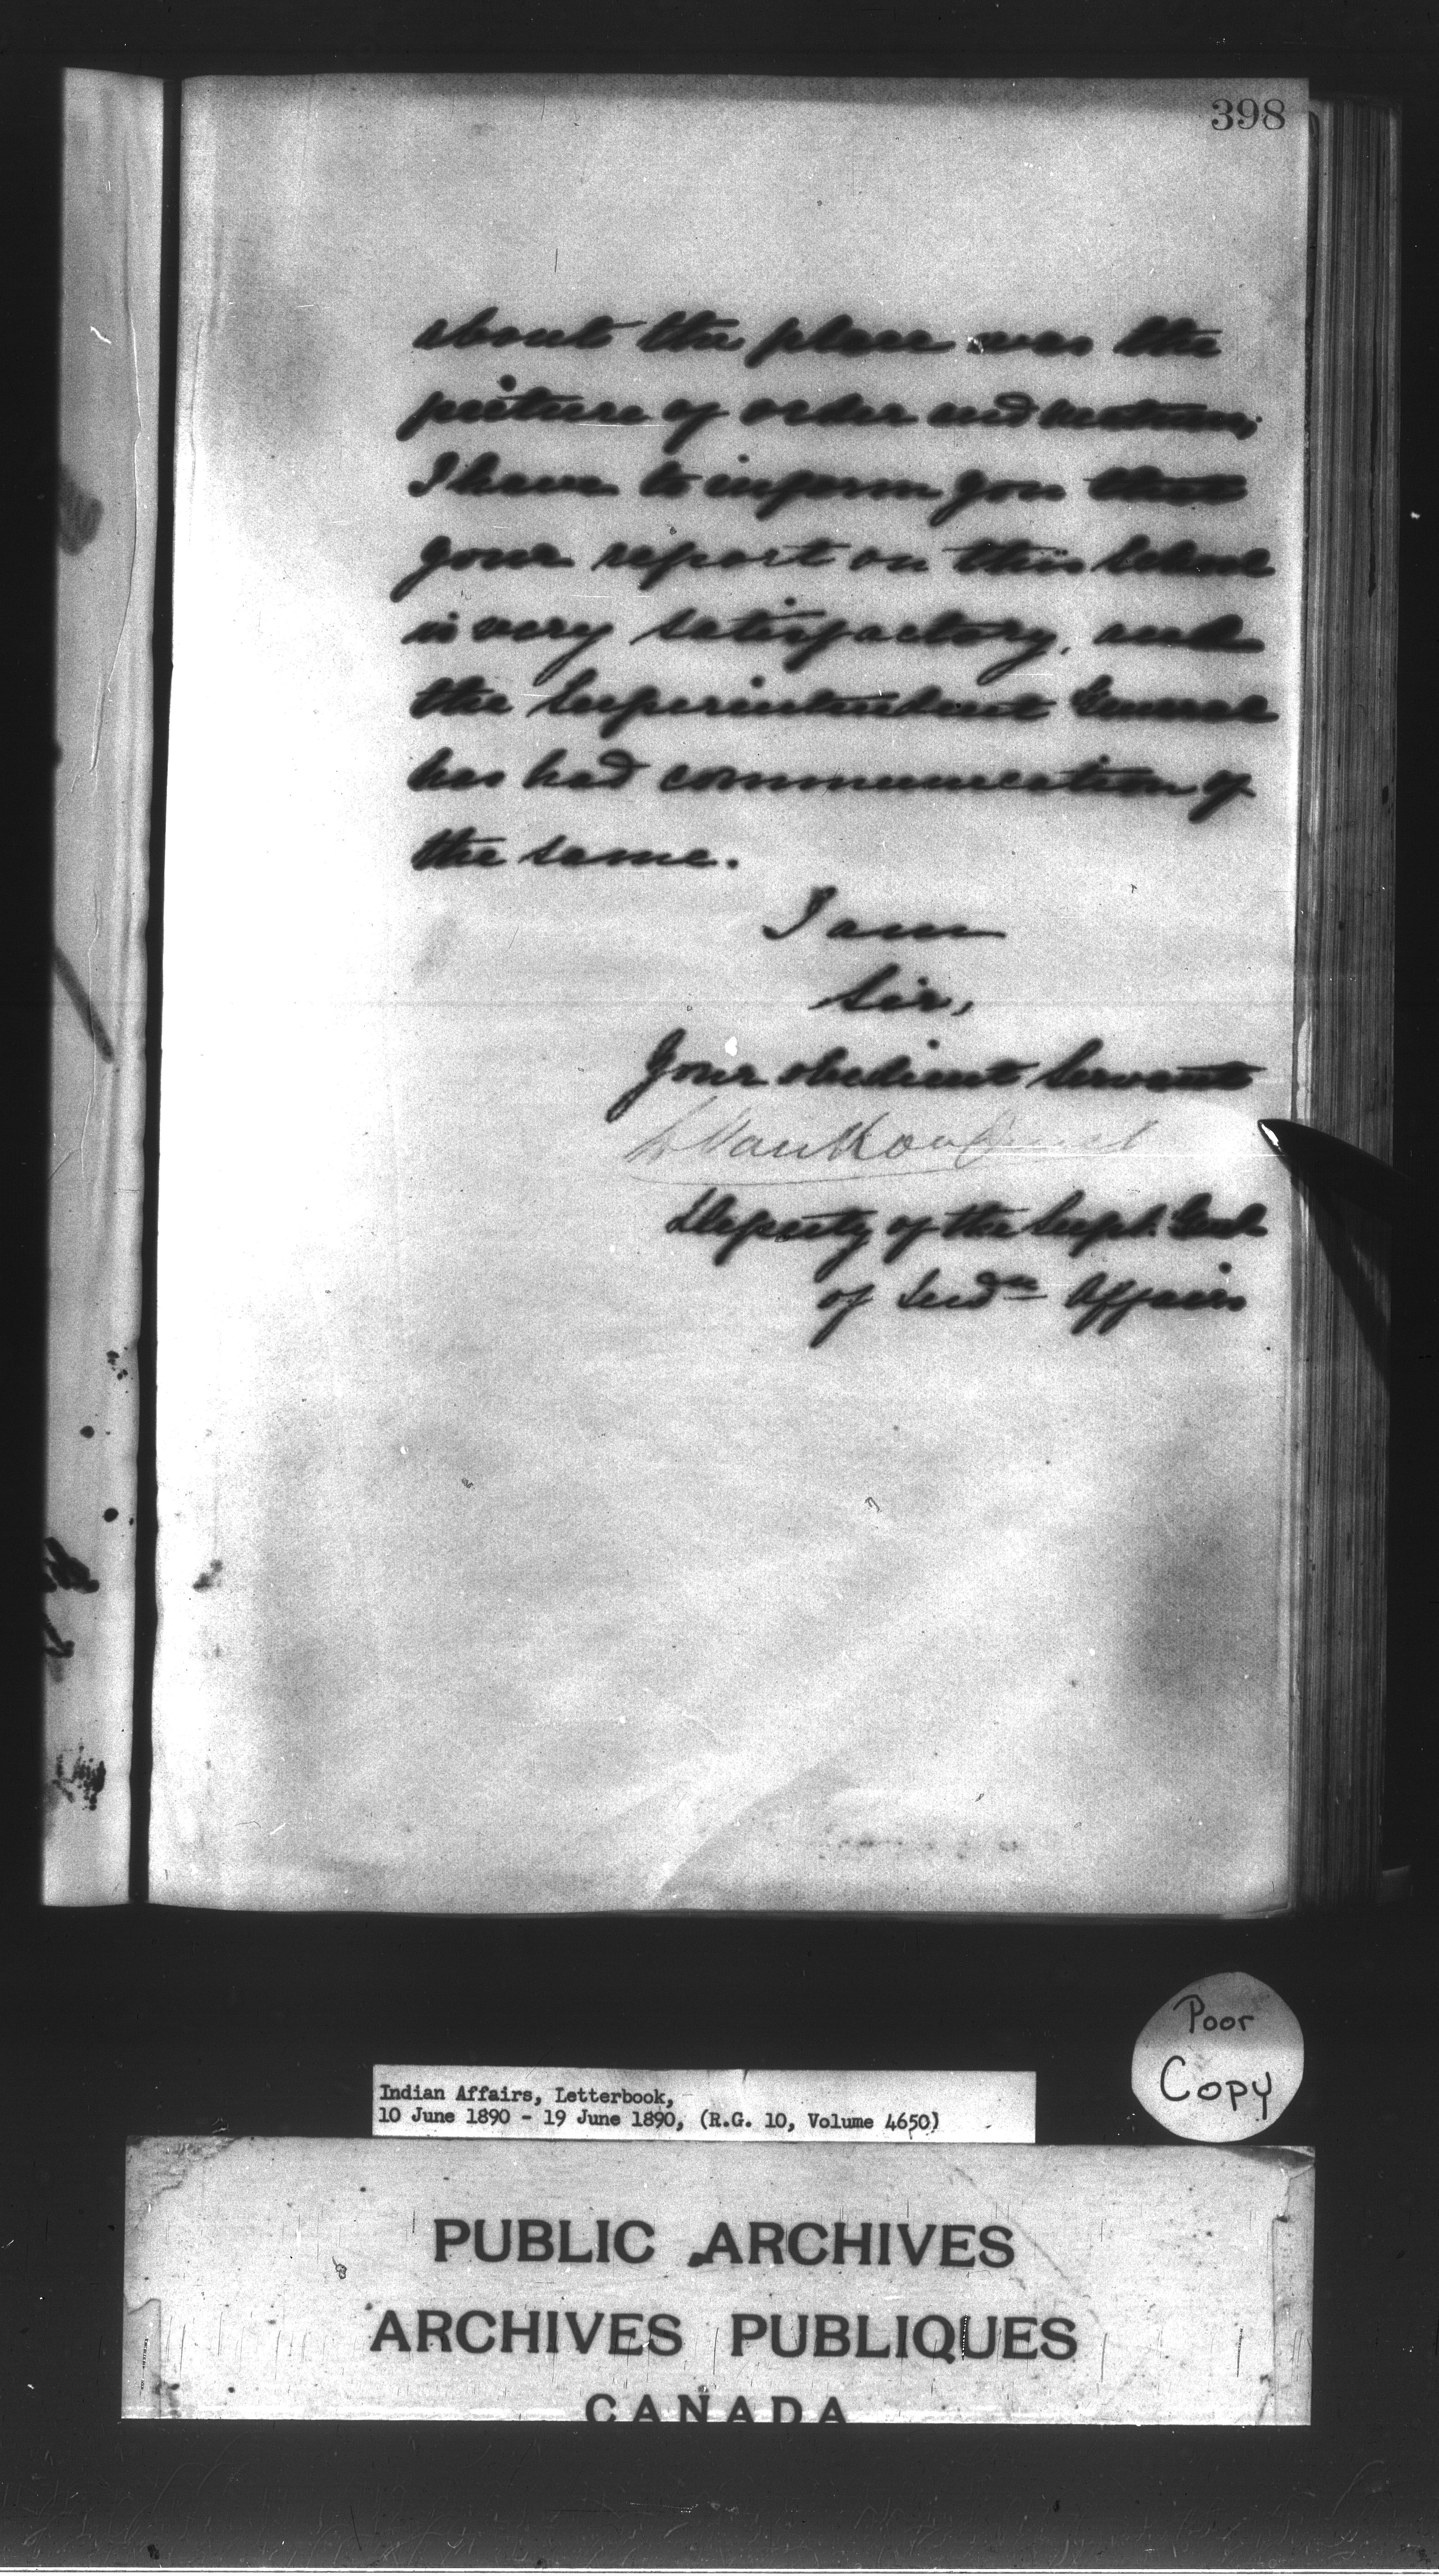 398
about the place was the
picture of order and neatness,
I have to inform you that
your report on this School
is very satisfactory, and
the Superintendent General
has had communication of
the same.
I am
Sir,
Your obedient Servant
L Van Koughnet
Deputy of the Supt. Genl
of Indn Affairs
Poor
Copy
Indian Affairs, Letterbook,
10 June 1890 - 19 June 1890, (R.G. 10, Volume 4650)
PUBLIC ARCHIVES
ARCHIVES PUBLIQUES
CANADA